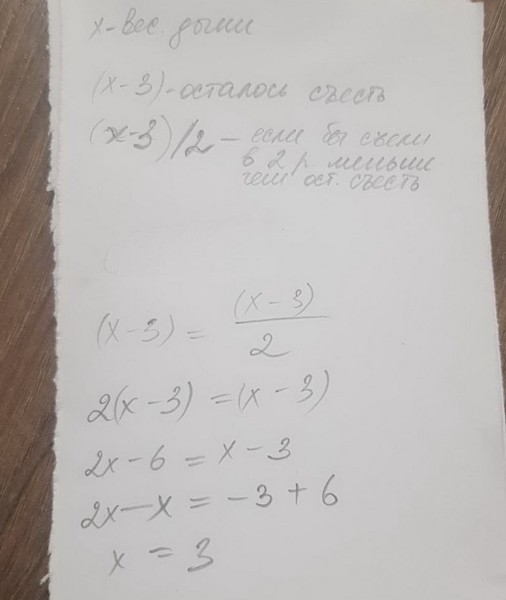 x - вес. дыни
(x-3) - осталось съесть
(x-3)/2 - если бы съели
в 2 р. меньше
чем ост. съесть
(x-3) = (x-3)/2
2(x-3) = (x-3)
2x-6 = x-3
2x-x = -3+6
x = 3